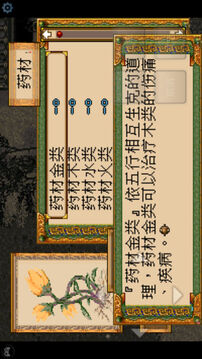 药材
药材金类
药材木类
药材水类
药材火类
『药材金类』依五行相互生克的道
理，药材金类可以治疗木类的伤痛
、疾病。